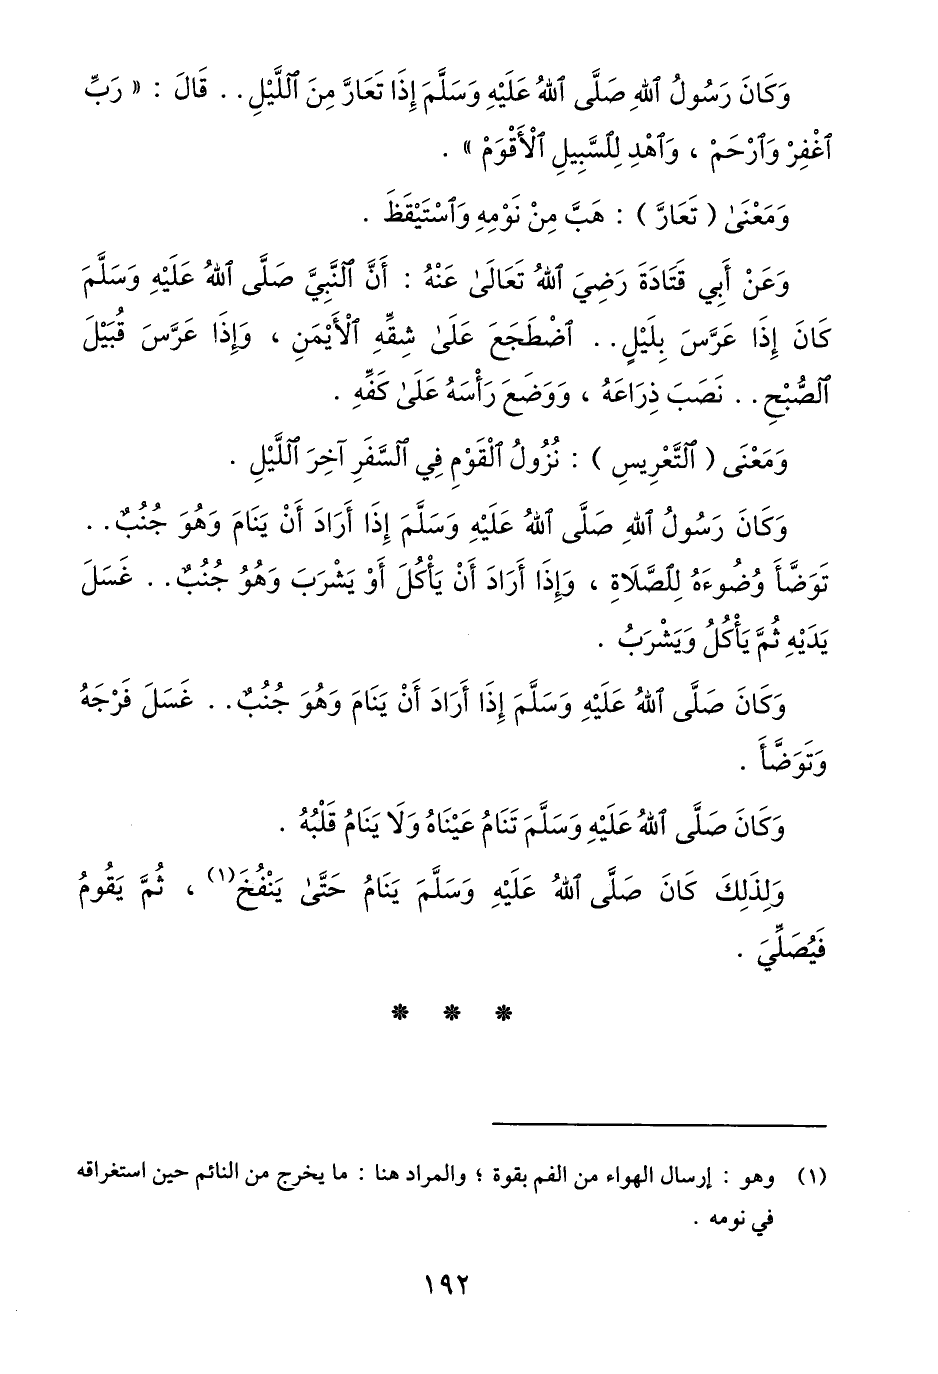 وَكَانَ رَسُولُ ٱللهِ صَلَّى ٱللهُ عَلَيْهِ وَسَلَّمَ إِذَا تَعَارَّ مِنَ ٱللَّيْلِ.. قَالَ : « رَبِّ
ٱغْفِرْ وَٱرْحَمْ ، وَٱهْدِ لِلسَّبِيلِ ٱلْأَقْوَمْ » .
وَمَعْنَىٰ ( تَعَارَّ ) : هَبَّ مِنْ نَوْمِهِ وَٱسْتَيْقَظَ .
وَعَنْ أَبِي قَتَادَةَ رَضِيَ ٱللهُ تَعَالَىٰ عَنْهُ : أَنَّ ٱلنَّبِيَّ صَلَّى ٱللهُ عَلَيْهِ وَسَلَّمَ
كَانَ إِذَا عَرَّسَ بِلَيْلٍ.. ٱضْطَجَعَ عَلَىٰ شِقِّهِ ٱلْأَيْمَنِ ، وَإِذَا عَرَّسَ قُبَيْلَ
ٱلصُّبْحِ.. نَصَبَ ذِرَاعَهُ ، وَوَضَعَ رَأْسَهُ عَلَىٰ كَفِّهِ .
وَمَعْنَى ( ٱلتَّعْرِيسِ ) : نُزُولُ ٱلْقَوْمِ فِي ٱلسَّفَرِ آخِرَ ٱللَّيْلِ .
وَكَانَ رَسُولُ ٱللهِ صَلَّى ٱللهُ عَلَيْهِ وَسَلَّمَ إِذَا أَرَادَ أَنْ يَنَامَ وَهُوَ جُنُبٌ..
تَوَضَّأَ وُضُوءَهُ لِلصَّلَاةِ ، وَإِذَا أَرَادَ أَنْ يَأْكُلَ أَوْ يَشْرَبَ وَهُوَ جُنُبٌ.. غَسَلَ
يَدَيْهِ ثُمَّ يَأْكُلُ وَيَشْرَبُ .
وَكَانَ صَلَّى ٱللهُ عَلَيْهِ وَسَلَّمَ إِذَا أَرَادَ أَنْ يَنَامَ وَهُوَ جُنُبٌ.. غَسَلَ فَرْجَهُ
وَتَوَضَّأَ .
وَكَانَ صَلَّى ٱللهُ عَلَيْهِ وَسَلَّمَ تَنَامُ عَيْنَاهُ وَلَا يَنَامُ قَلْبُهُ .
وَلِذَلِكَ كَانَ صَلَّى ٱللهُ عَلَيْهِ وَسَلَّمَ يَنَامُ حَتَّىٰ يَنْفُخَ(١) ، ثُمَّ يَقُومُ
فَيُصَلِّيَ .
* * *
(١) وهو : إرسال الهواء من الفم بقوة ؛ والمراد هنا : ما يخرج من النائم حين استغراقه
في نومه .
١٩٢